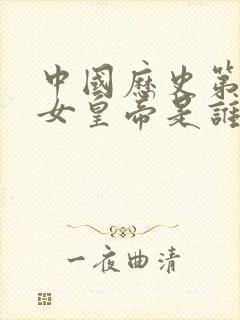 中國歷史第
女皇帝是誰
一夜曲清